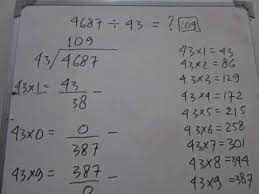 4687 ÷ 43 = ? 109
109
43 4687
43×1= 43 -
38
43×0= 0 -
387
43×9= 387 -
0
43×1=43
43×2=86
43×3=129
43×4=172
43×5=215
43×6=258
43×7=301
43×8=344
43×9=387